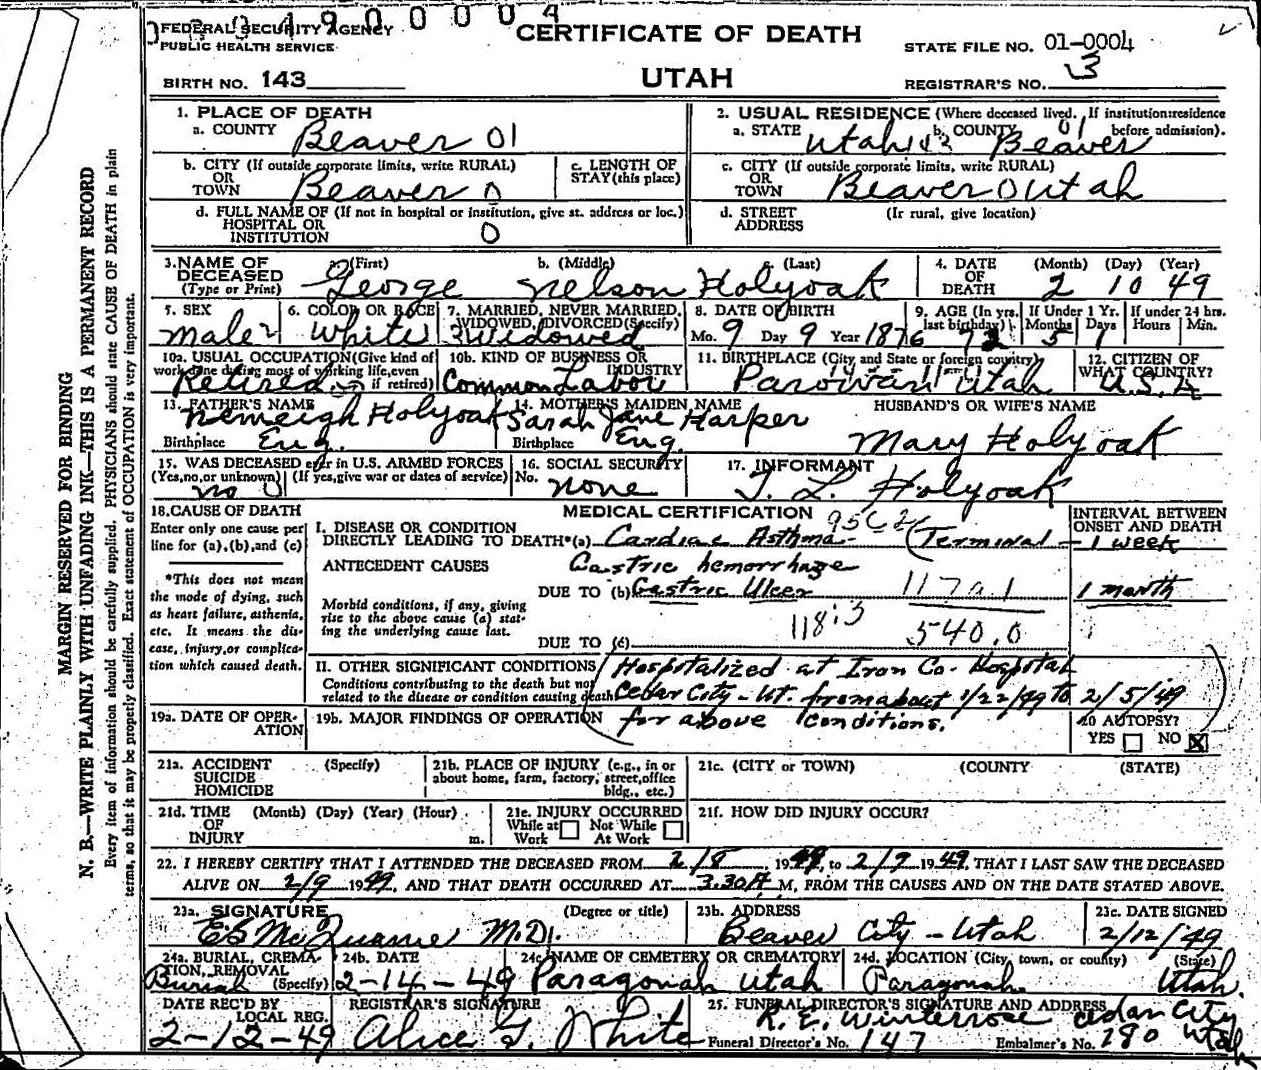 FEDERAL SECURITY AGENCY
1900004
PUBLIC HEALTH SERVICE
CERTIFICATE OF DEATH
STATE FILE NO. 01-0004
BIRTH NO. 143
UTAH
REGISTRAR'S NO. 3
1. PLACE OF DEATH
a. COUNTY Beaver 01
2. USUAL RESIDENCE (Where deceased lived. If institution:residence before admission).
a. STATE Utah 43 b. COUNTY 01 Beaver
b. CITY (If outside corporate limits, write RURAL) OR TOWN Beaver 0
c. LENGTH OF STAY (this place)
c. CITY (If outside corporate limits, write RURAL) OR TOWN Beaver 0 Utah
d. FULL NAME OF (If not in hospital or institution, give st. address or loc.) HOSPITAL OR INSTITUTION 0
d. STREET ADDRESS (If rural, give location)
3. NAME OF DECEASED (Type or Print) a. (First) George b. (Middle) Nelson c. (Last) Holyoak
4. DATE OF DEATH (Month) (Day) (Year) 2 10 49
5. SEX Male
6. COLOR OR RACE White
7. MARRIED, NEVER MARRIED, WIDOWED, DIVORCED (Specify) 3 Widowed
8. DATE OF BIRTH Mo. 9 Day 9 Year 1876
9. AGE (In yrs. last birthday) 72 If Under 1 Yr. Months 5 Days 1 If under 24 hrs. Hours Min.
10a. USUAL OCCUPATION (Give kind of work done during most of working life, even if retired) Retired
10b. KIND OF BUSINESS OR INDUSTRY Common Labor
11. BIRTHPLACE (City and State or foreign country) Parowan Utah
12. CITIZEN OF WHAT COUNTRY? U.S.A
13. FATHER'S NAME Holyoak
Birthplace Eng.
14. MOTHER'S MAIDEN NAME Sarah Jane Harper
Birthplace Eng.
HUSBAND'S OR WIFE'S NAME
Mary Holyoak
15. WAS DECEASED ever in U.S. ARMED FORCES (Yes, no, or unknown) (If yes, give war or dates of service) no 0
16. SOCIAL SECURITY No. none
17. INFORMANT T. L. Holyoak
18. CAUSE OF DEATH
Enter only one cause per line for (a), (b), and (c)
*This does not mean the mode of dying, such as heart failure, asthenia, etc. It means the disease, injury, or complication which caused death.
MEDICAL CERTIFICATION
INTERVAL BETWEEN ONSET AND DEATH
I. DISEASE OR CONDITION DIRECTLY LEADING TO DEATH*(a) Cardiac Asthma - (Terminal - 1 week
ANTECEDENT CAUSES Gastric hemorrhage
DUE TO (b) Gastric Ulcer 117a1 1 month
Morbid conditions, if any, giving rise to the above cause (a) stating the underlying cause last.
118:3 540.0
DUE TO (c)
II. OTHER SIGNIFICANT CONDITIONS
Conditions contributing to the death but not related to the disease or condition causing death
Hospitalized at Iron Co. Hospital
Cedar City - Ut. from about 1/22/49 to 2/5/49
for above conditions.
19a. DATE OF OPERATION
19b. MAJOR FINDINGS OF OPERATION
20 AUTOPSY? YES NO X
21a. ACCIDENT SUICIDE HOMICIDE (Specify)
21b. PLACE OF INJURY (e.g., in or about home, farm, factory, street, office bldg., etc.)
21c. (CITY or TOWN) (COUNTY) (STATE)
21d. TIME OF INJURY (Month) (Day) (Year) (Hour) m.
21e. INJURY OCCURRED While at Work Not While At Work
21f. HOW DID INJURY OCCUR?
22. I HEREBY CERTIFY THAT I ATTENDED THE DECEASED FROM 2/8, 1949, to 2/9 1949 THAT I LAST SAW THE DECEASED
ALIVE ON 2/9 1949, AND THAT DEATH OCCURRED AT 3.30A M, FROM THE CAUSES AND ON THE DATE STATED ABOVE.
23a. SIGNATURE (Degree or title) M.D.
23b. ADDRESS Beaver City - Utah
23c. DATE SIGNED 2/12/49
24a. BURIAL, CREMATION, REMOVAL (Specify) Burial
24b. DATE 2-14-49
24c. NAME OF CEMETERY OR CREMATORY Paragonah Utah
24d. LOCATION (City, town, or county) (State) Paragonah Utah.
DATE REC'D BY LOCAL REG. 2-12-49
REGISTRAR'S SIGNATURE Alice G. White
25. FUNERAL DIRECTOR'S SIGNATURE AND ADDRESS R. E. Winterrose Cedar City Utah
Funeral Director's No. 147 Embalmer's No. 190
MARGIN RESERVED FOR BINDING
N. B.—WRITE PLAINLY WITH UNFADING INK—THIS IS A PERMANENT RECORD
Every item of information should be carefully supplied. PHYSICIANS should state CAUSE OF DEATH in plain
terms, so that it may be properly classified. Exact statement of OCCUPATION is very important.